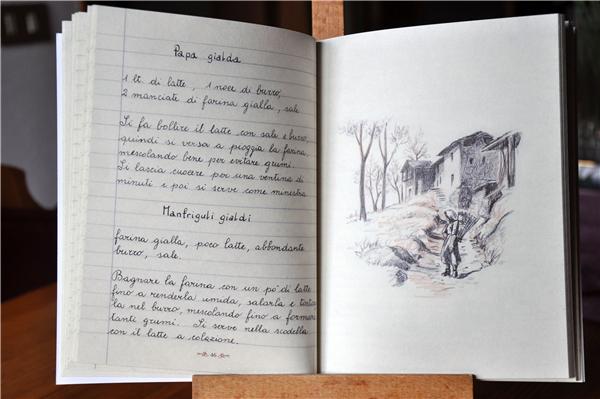 Papa gialda
1 lt. di latte, 1 noce di burro,
2 manciate di farina gialla, sale
Si fa bollire il latte con sale e burro,
quindi si versa a pioggia la farina,
mescolando bene per evitare grumi.
Si lascia cuocere per una ventina di
minuti e poi si serve come minestra
Manfriguli gialdi
farina gialla, poco latte, abbondante
burro, sale.
Bagnare la farina con un po' di latte
fino a renderla umida, salarla e tosta
la nel burro, mescolando fino a formare
tanti grumi. Si serve nella scodella
con il latte a colazione.